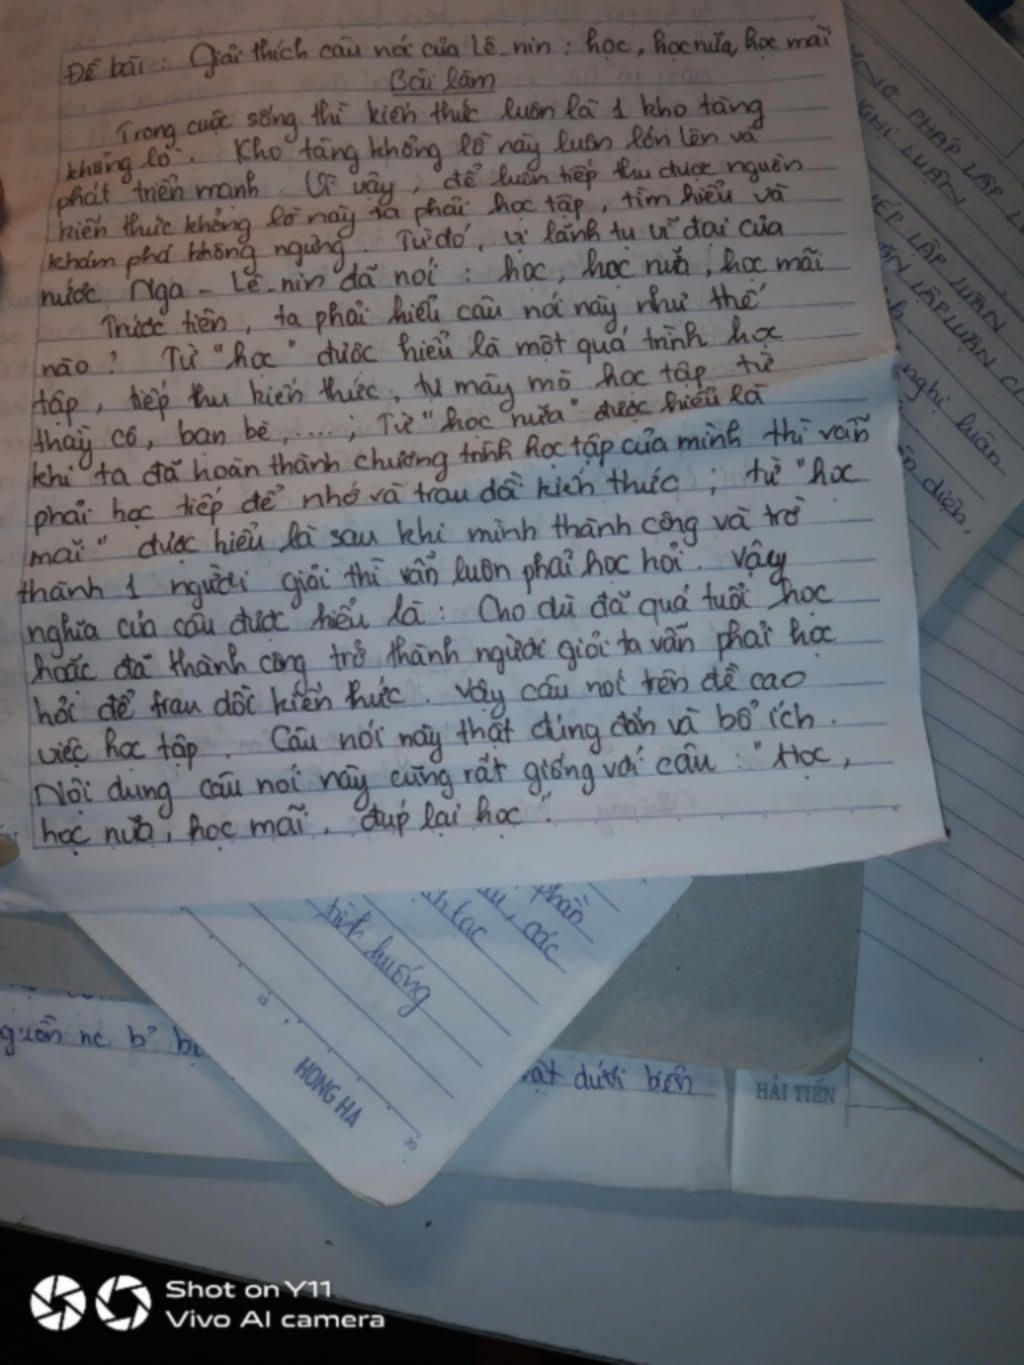 Đề bài : Giải thích câu nói của Lê-nin : học, học nữa, học mãi
Bài làm
Trong cuộc sống thì kiến thức luôn là 1 kho tàng
khổng lồ. Kho tàng khổng lồ này luôn lớn lên và
phát triển mạnh. Vì vậy, để luôn tiếp thu được nguồn
kiến thức khổng lồ này ta phải học tập, tìm hiểu và
khám phá không ngừng. Từ đó, vị lãnh tụ vĩ đại của
nước Nga - Lê-nin đã nói : học, học nữa, học mãi
Trước tiên, ta phải hiểu câu nói này như thế
nào? Từ "học" được hiểu là một quá trình học
tập, tiếp thu kiến thức, tự mày mò học tập từ
thầy cô, bạn bè,....; Từ "học nữa" được hiểu là
khi ta đã hoàn thành chương trình học tập của mình thì vẫn
phải học tiếp để nhớ và trau dồi kiến thức ; từ "học
mãi" được hiểu là sau khi mình thành công và trở
thành 1 người giỏi thì vẫn luôn phải học hỏi. Vậy
nghĩa của câu được hiểu là: Cho dù đã quá tuổi học
hoặc đã thành công trở thành người giỏi ta vẫn phải học
hỏi để trau dồi kiến thức. Vậy câu nói trên đề cao
việc học tập. Câu nói này thật đúng đắn và bổ ích.
Nội dung câu nói này cũng rất giống với câu : "Học,
học nữa, học mãi, đúp lại học".
PHÁP LẬP
LUẬN
LẬP LUẬN
LẬP LUẬN
nghị luận
diện,
phần
các
lạc
tình huống
15
20
HONG HA
nguồn nc bị
dưới biển
HẢI TIẾN
Shot on Y11
Vivo AI camera